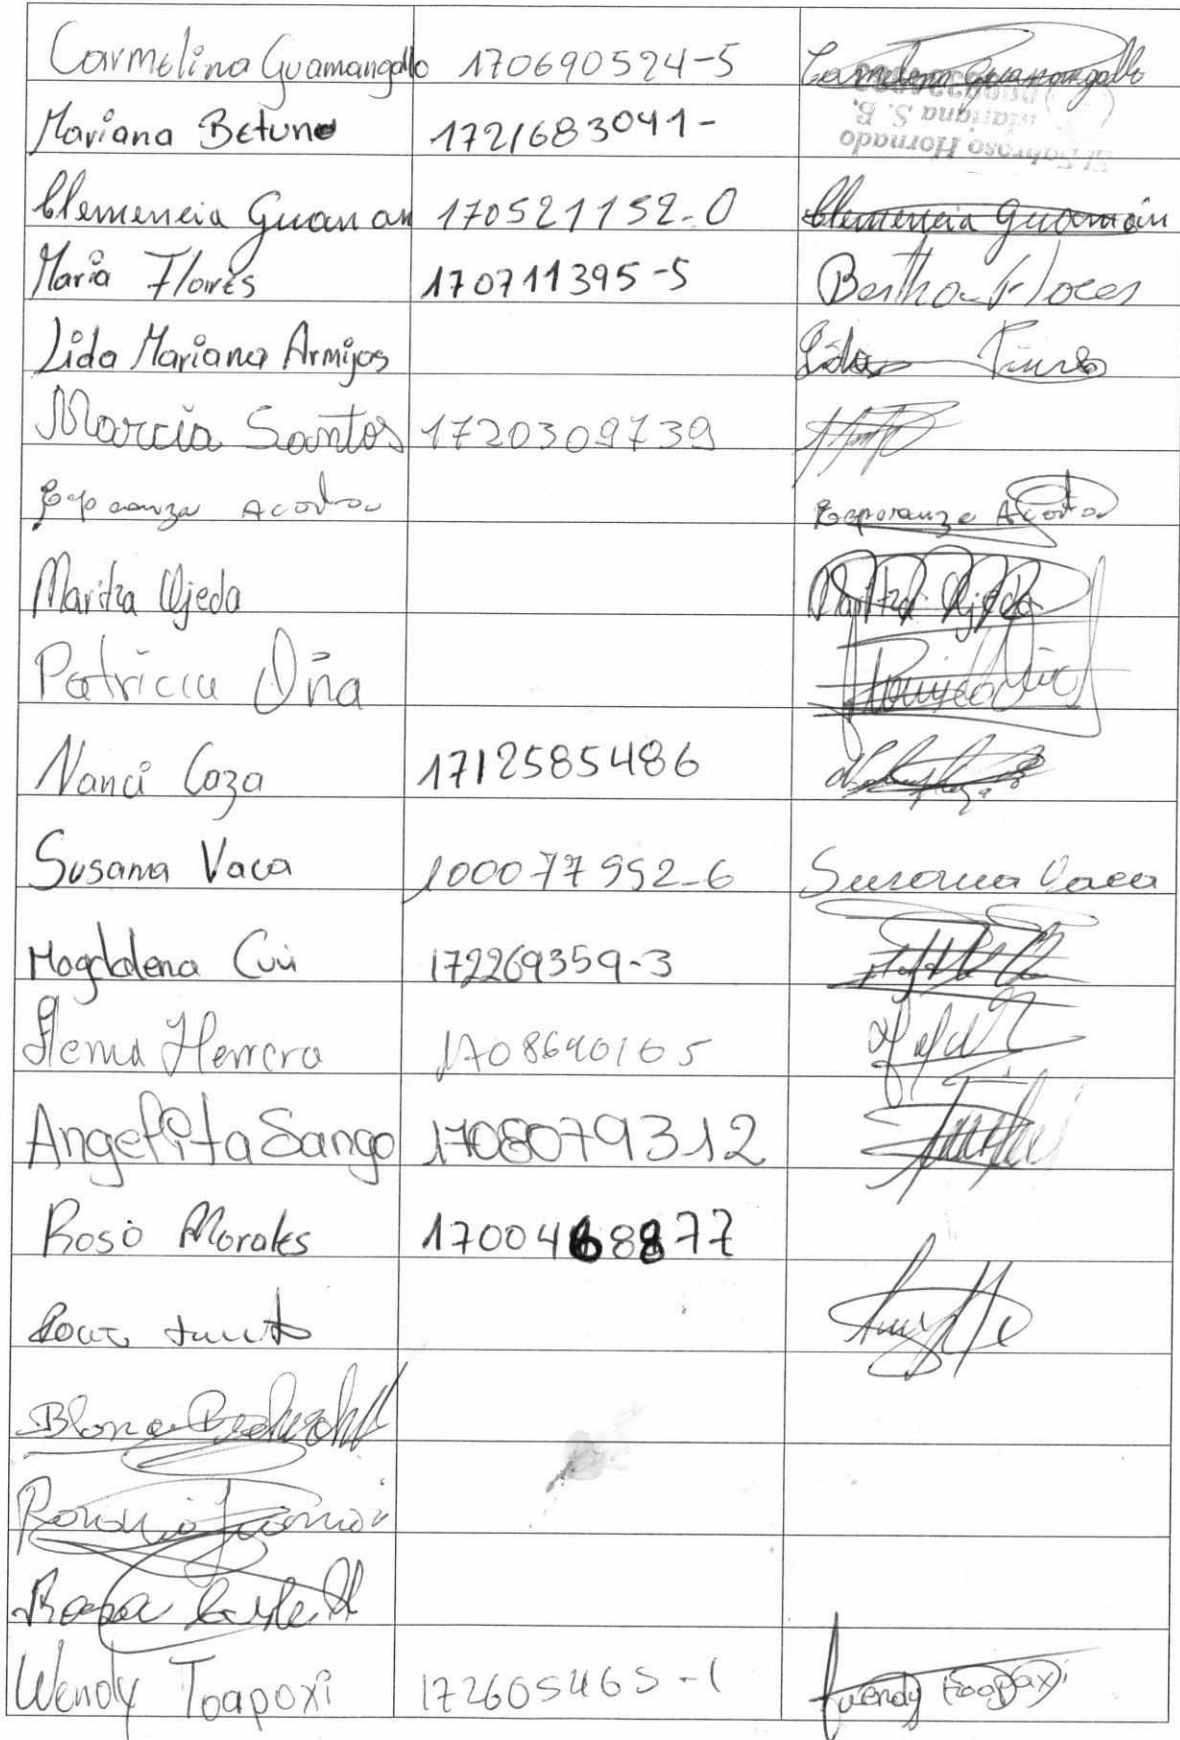 Carmelina Guamangallo 170690524-5 Carmelina Guamangallo
Mariana Betune 1721683041-
El Sabroso Hornado
Mariana S. B.
Clemencia Guaman 170521152-0 Clemencia Guamán
Maria Flores 170711395-5 Bertha Flores
Lida Mariana Armijos Lida
Marcia Santos 1720309739
Esperanza Acosta Esperanza Acosta
Maritza Ojeda Maritza Ojeda
Patricia Oña
Nanci Caza 1712585486
Susana Vaca 100077952-6 Susana Vaca
Magdalena Cuii 172269359-3
Herrera 1708640165
Angelita Sango 1708079312
Rosó Morales 1700468877
Blanca
Rosario
Rosa
Wendy Toapaxi 172605465-1 Wendy Toapaxi